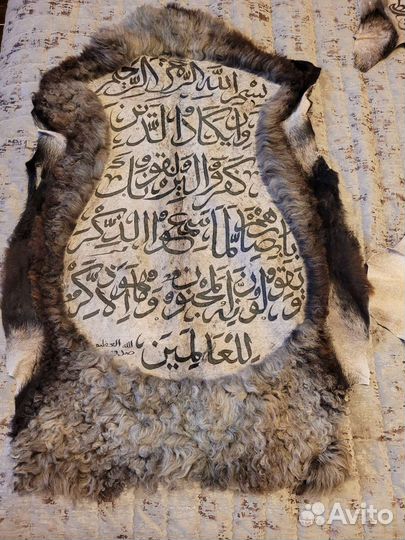 بسم الله الرحمن الرحيم
وان يكاد الذين
كفروا ليزلقونك
بابصارهم لما سمعوا الذكر
ويقولون انه لمجنون وما هو الا ذكر
للعالمين
صدق الله العظيم
Avito